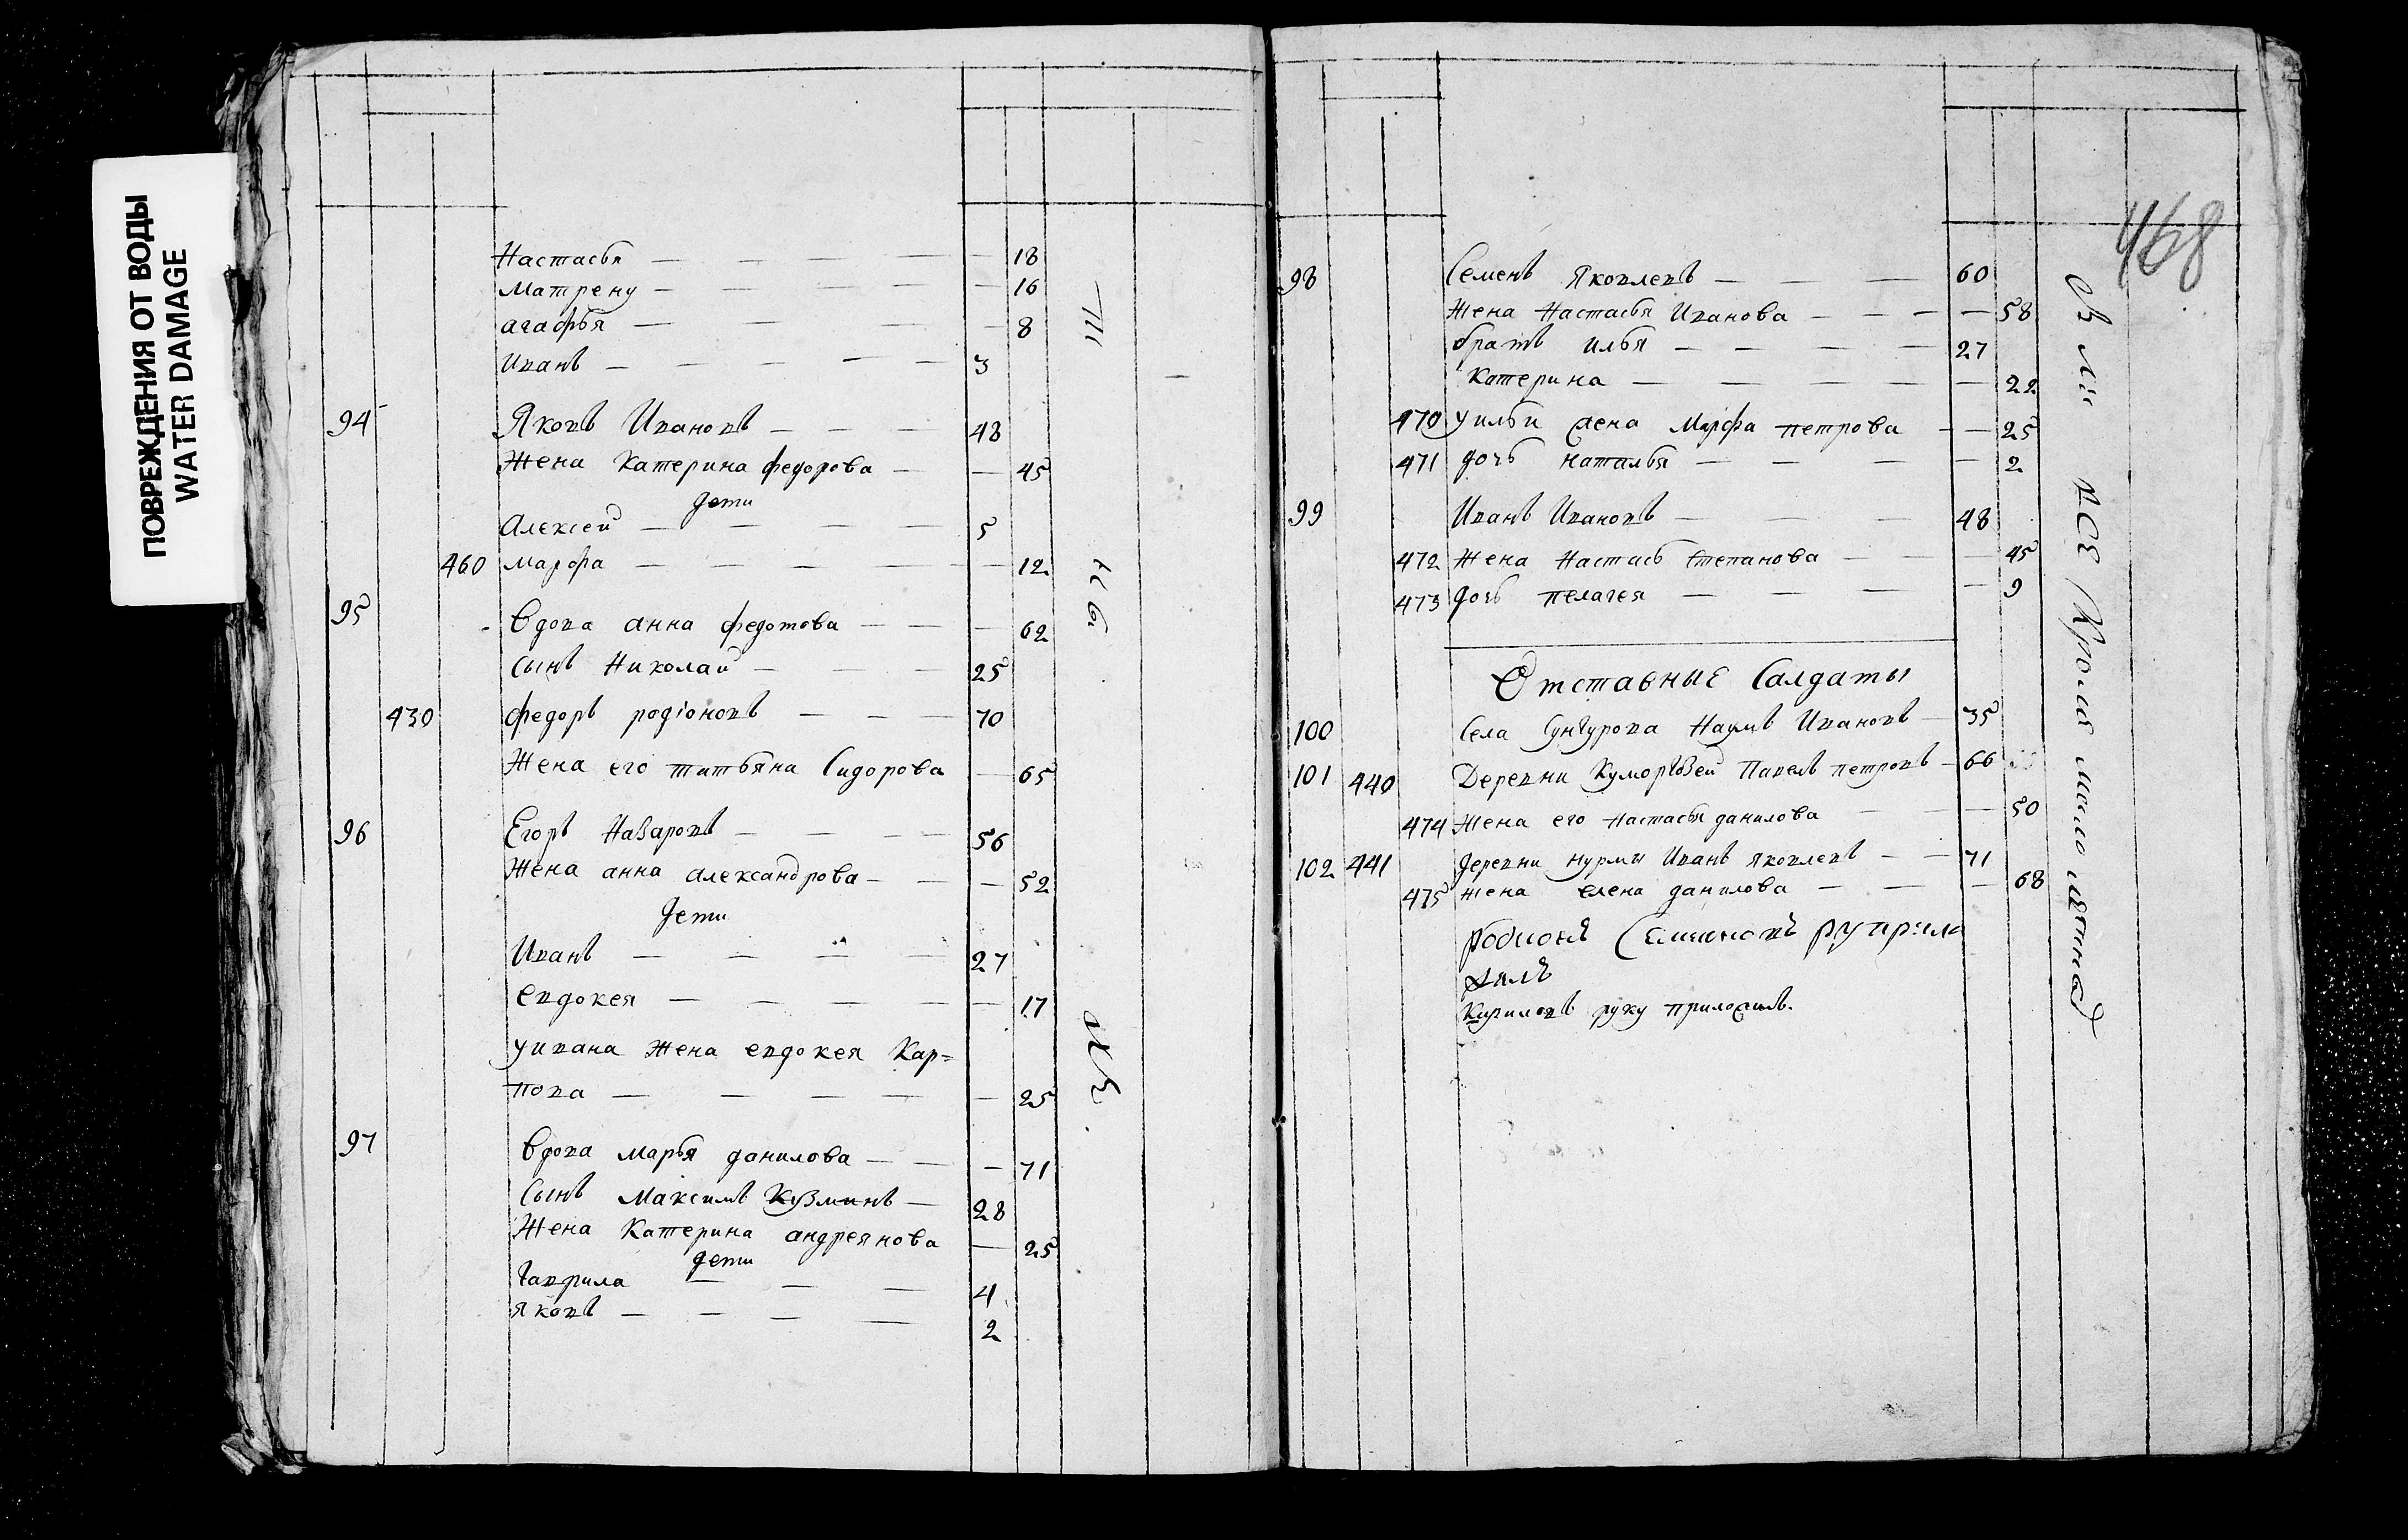 ПОВРЕЖДЕНИЯ ОТ ВОДЫ
WATER DAMAGE
Настасья — — — — — 18
Матрену — — — — — 16
агафья — — — — — 8
Иванъ — — — — 3
94 Яковъ Ивановъ — — — 48
Жена Катерина федорова — — 45
дети
Алексей — — — — 5
460 марфа — — — — — 12
95 Вдова анна федотова — — — 62
сынъ Николай — — — 25
430 федоръ родiоновъ — — — 70
Жена его татьяна Сидорова — 65
96 Егоръ Назаровъ — — — — 56
Жена анна александрова — — — 52
дети
Иванъ — — — — 27
евдокея — — — — — 17
уивана жена евдокея Кар=
пова — — — — — 25
97 Вдова марья данилова — — — 71
Сынъ максимъ Кузминъ — 28
Жена Катерина андреянова — 25
дети
гаврила — — — 4
яковъ — — — — 2
468
98 Семенъ Яковлевъ — — — 60
Жена Настасья Иванова — — — — 58
братъ илья — — — — 27
Катерина — — — — — 22
470 уильи жена Марфа петрова — — 25
471 дочь наталья — — — — 2
99 Иванъ Ивановъ — — — 48
472 Жена Настась Степанова — — — 45
473 дочь пелагея — — — — 9
Отставные Салдаты
100 Села Сунгурова Наумъ Ивановъ — 35
101 440 Деревни Павелъ петровъ — 66
474 Жена его настасья данилова — — — 50
102 441 деревни нурмы Иванъ яковлевъ — — 71
475 жена елена данилова — — — 68
Родионъ Семионовъ
Кириловъ руку приложилъ.